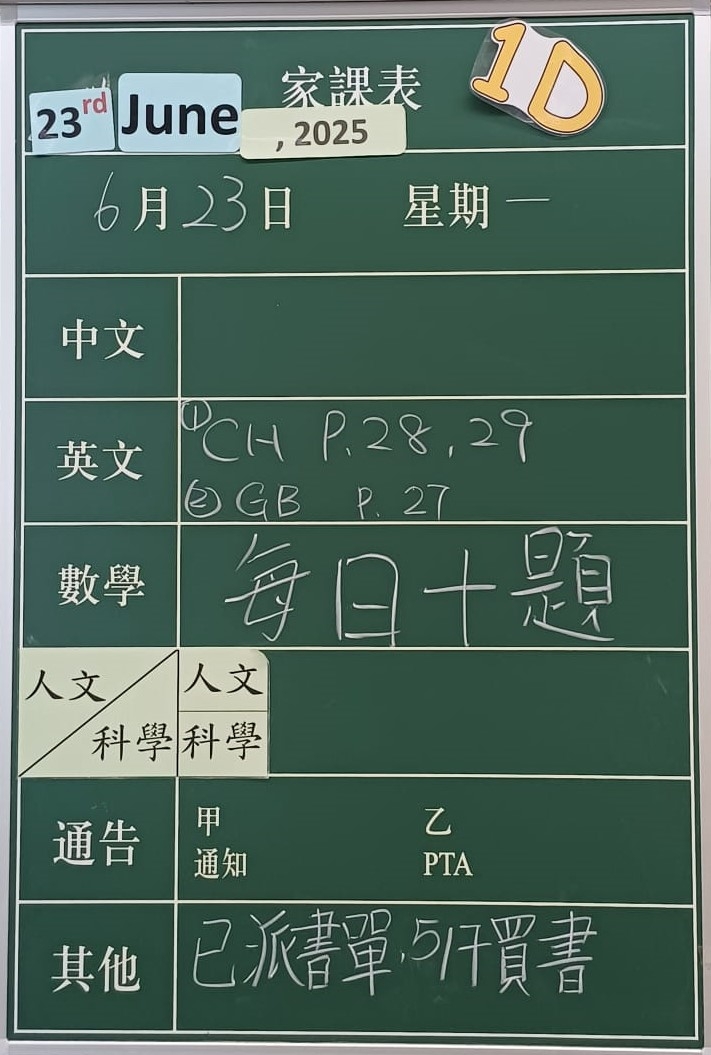 家課表 1D
23rd June , 2025
6月23日 星期一
中文
英文 ①CH P.28,29
②GB P.27
數學 每日十題
人文 人文
科學 科學
通告 甲 乙
通知 PTA
其他 已派書單,5/7買書